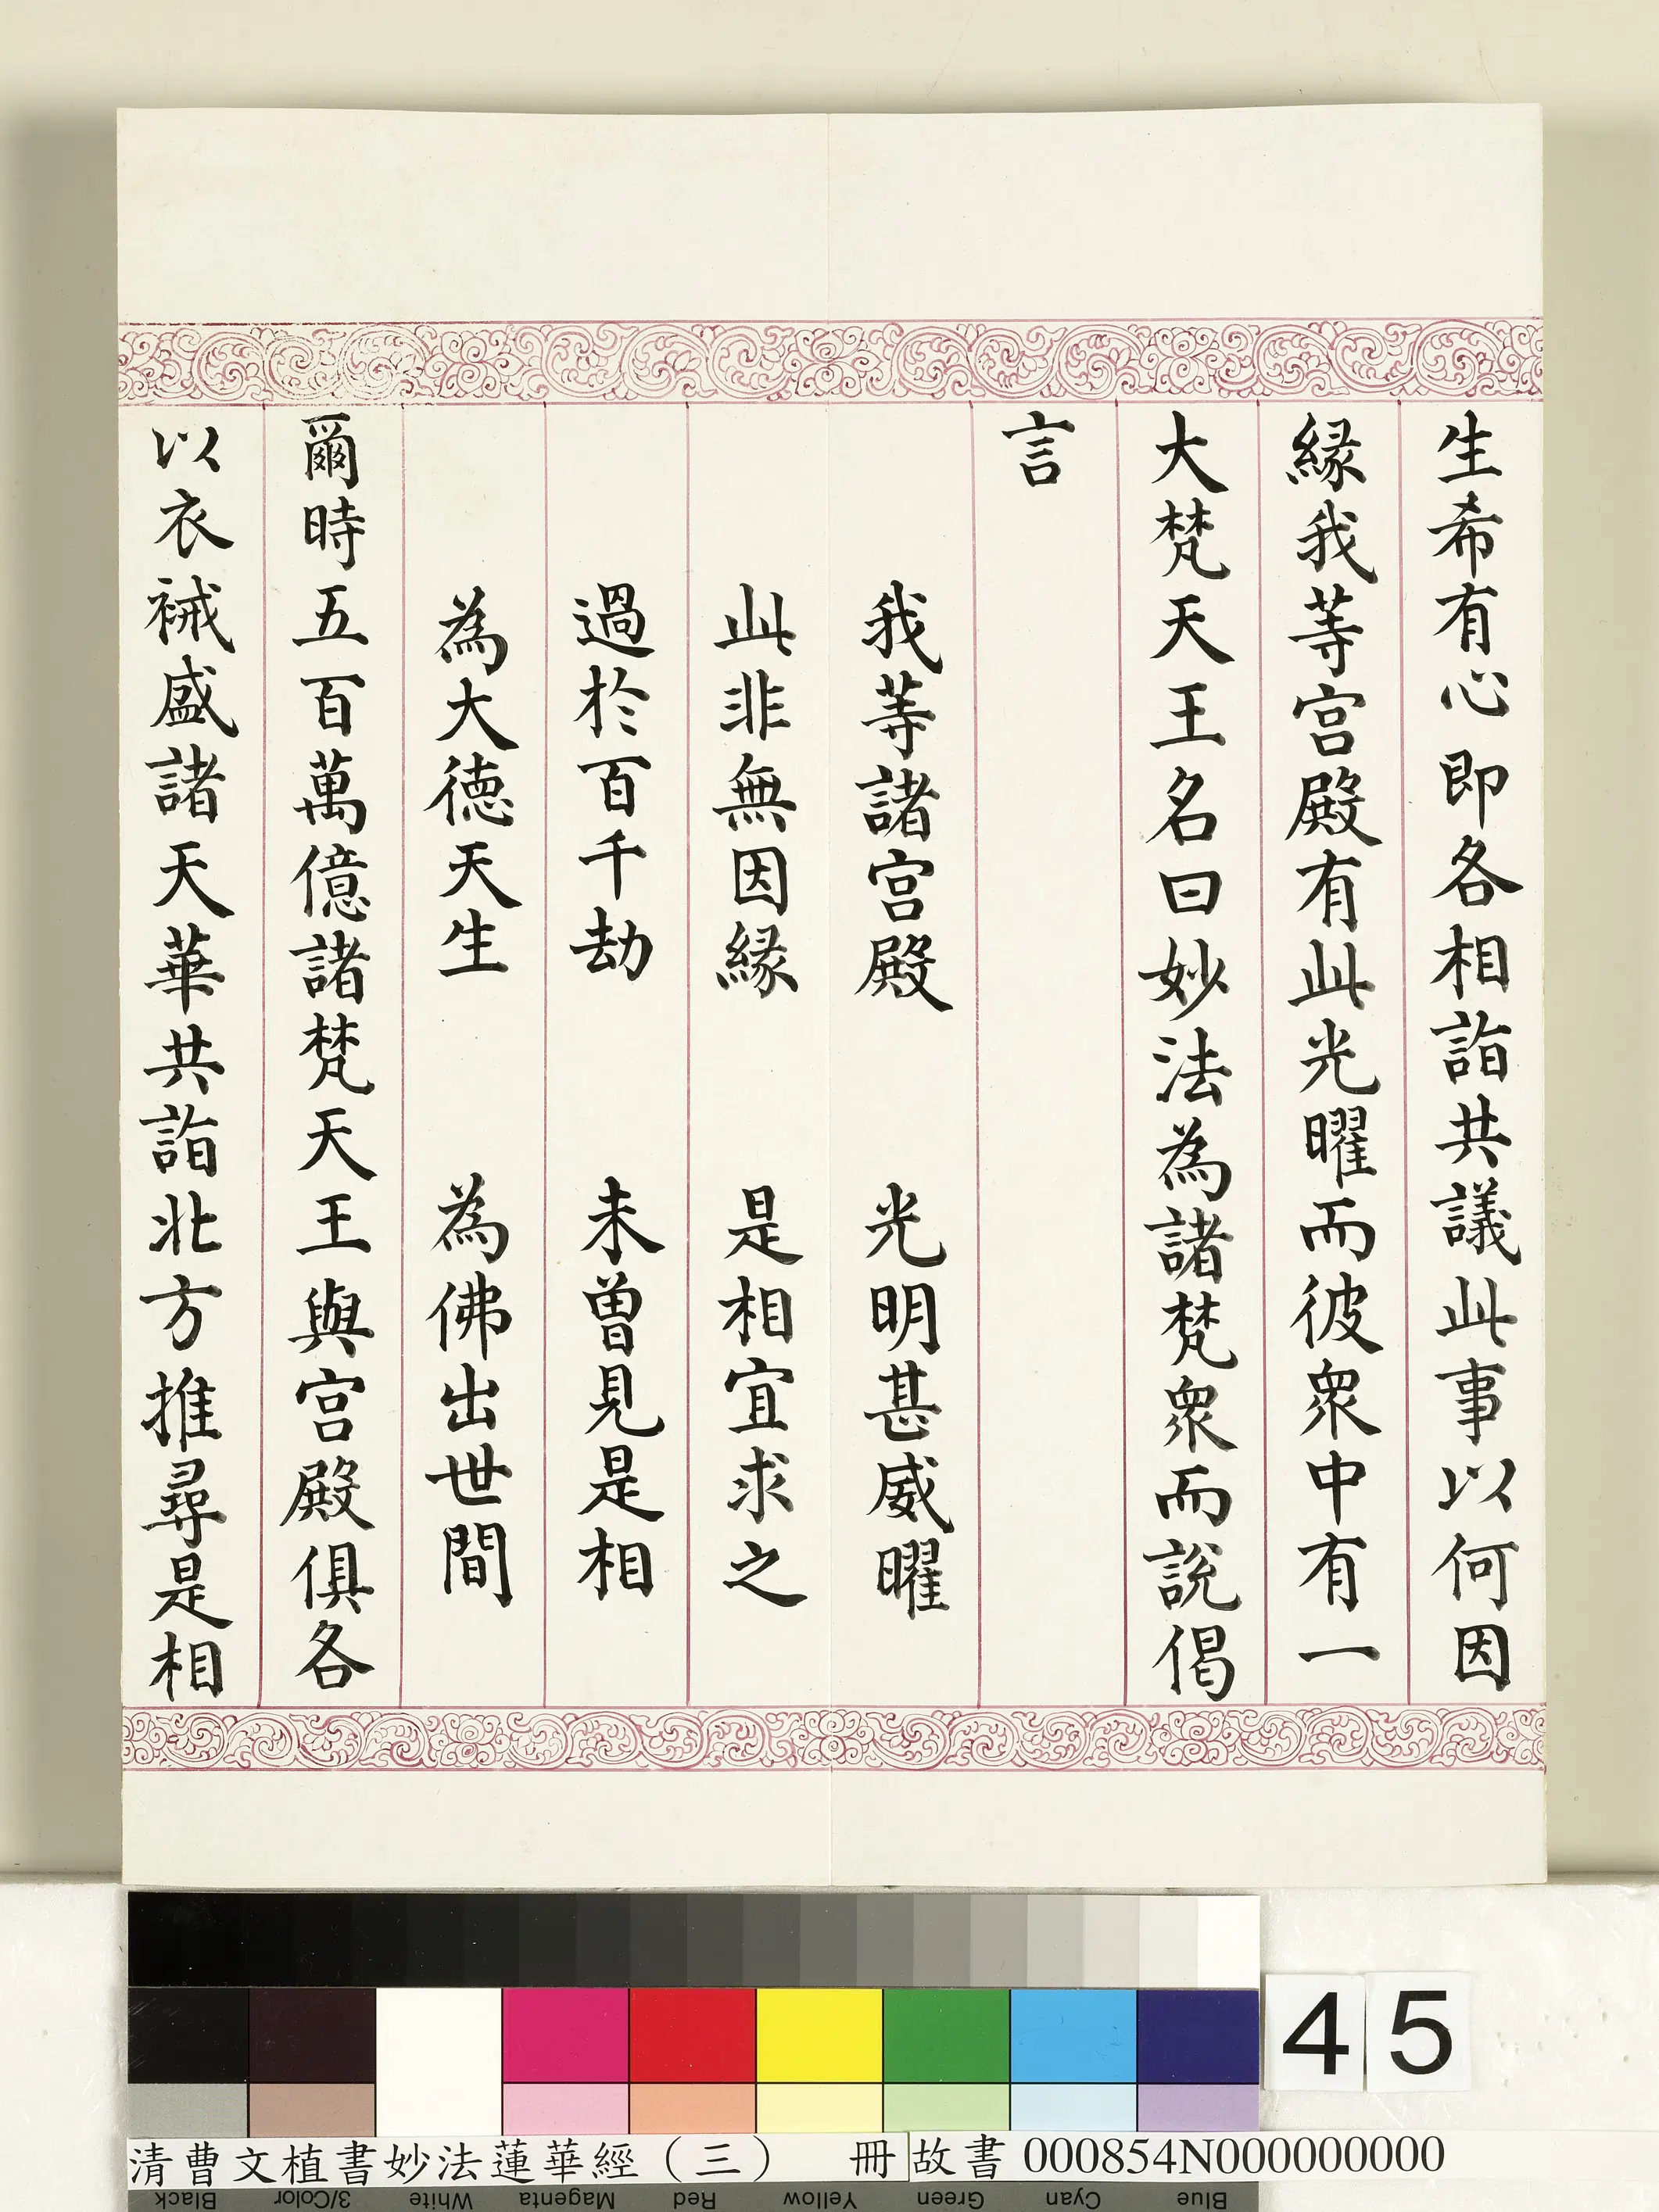 生希有心即各相詣共議此事以何因
緣我等宮殿有此光曜而彼衆中有一
大梵天王名曰妙法為諸梵衆而說偈
言
我等諸宮殿　光明甚威曜
此非無因緣　是相宜求之
過於百千劫　未曾見是相
為大德天生　為佛出世間
爾時五百萬億諸梵天王與宮殿俱各
以衣祴盛諸天華共詣北方推尋是相
45
清曹文植書妙法蓮華經（三）　冊 故書 000854N000000000
Black 3/Color White Magenta Red Yellow Green Cyan Blue